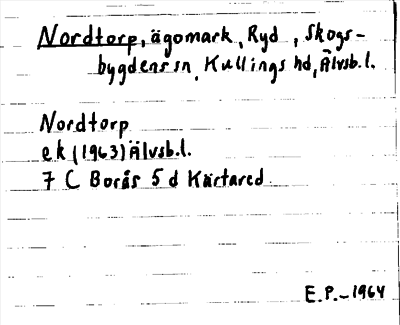 Nordtorp, ägomark, Ryd, Skogs-
bygdens sn, Kullings hd, Älvsb.l.
Nordtorp
ek (1963) Älvsb.l.
7 C Borås 5 d Kärtared
E.P.-1964